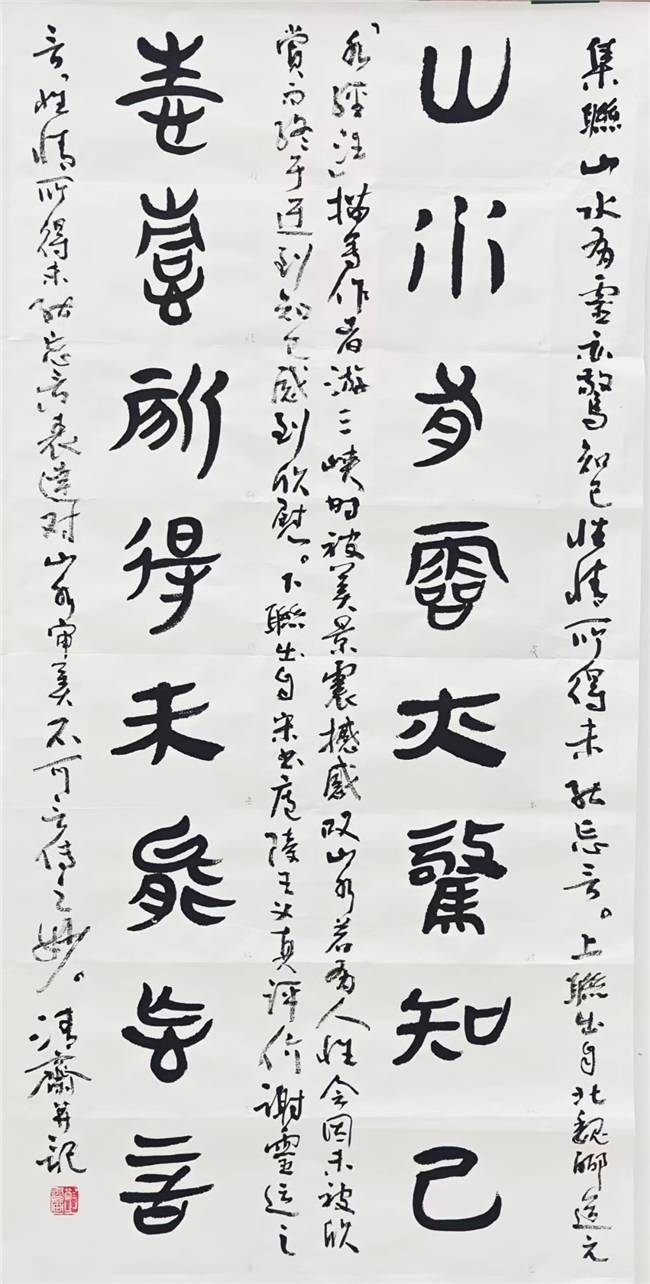 集聯山水有靈亦驚知己性情所得未能忘言。上聯出自北魏酈道元
山水有靈亦驚知己
《水經注》描寫作者游三峽時被美景震撼感叹山水若有人性會因未被欣
賞而終于遇到知己感到欣慰。下聯出自宋書廬陵王义真評价謝靈运之
所得未能忘言
言，性情所得未能忘言表達对山水审美不可言傳之妙。清齋并記